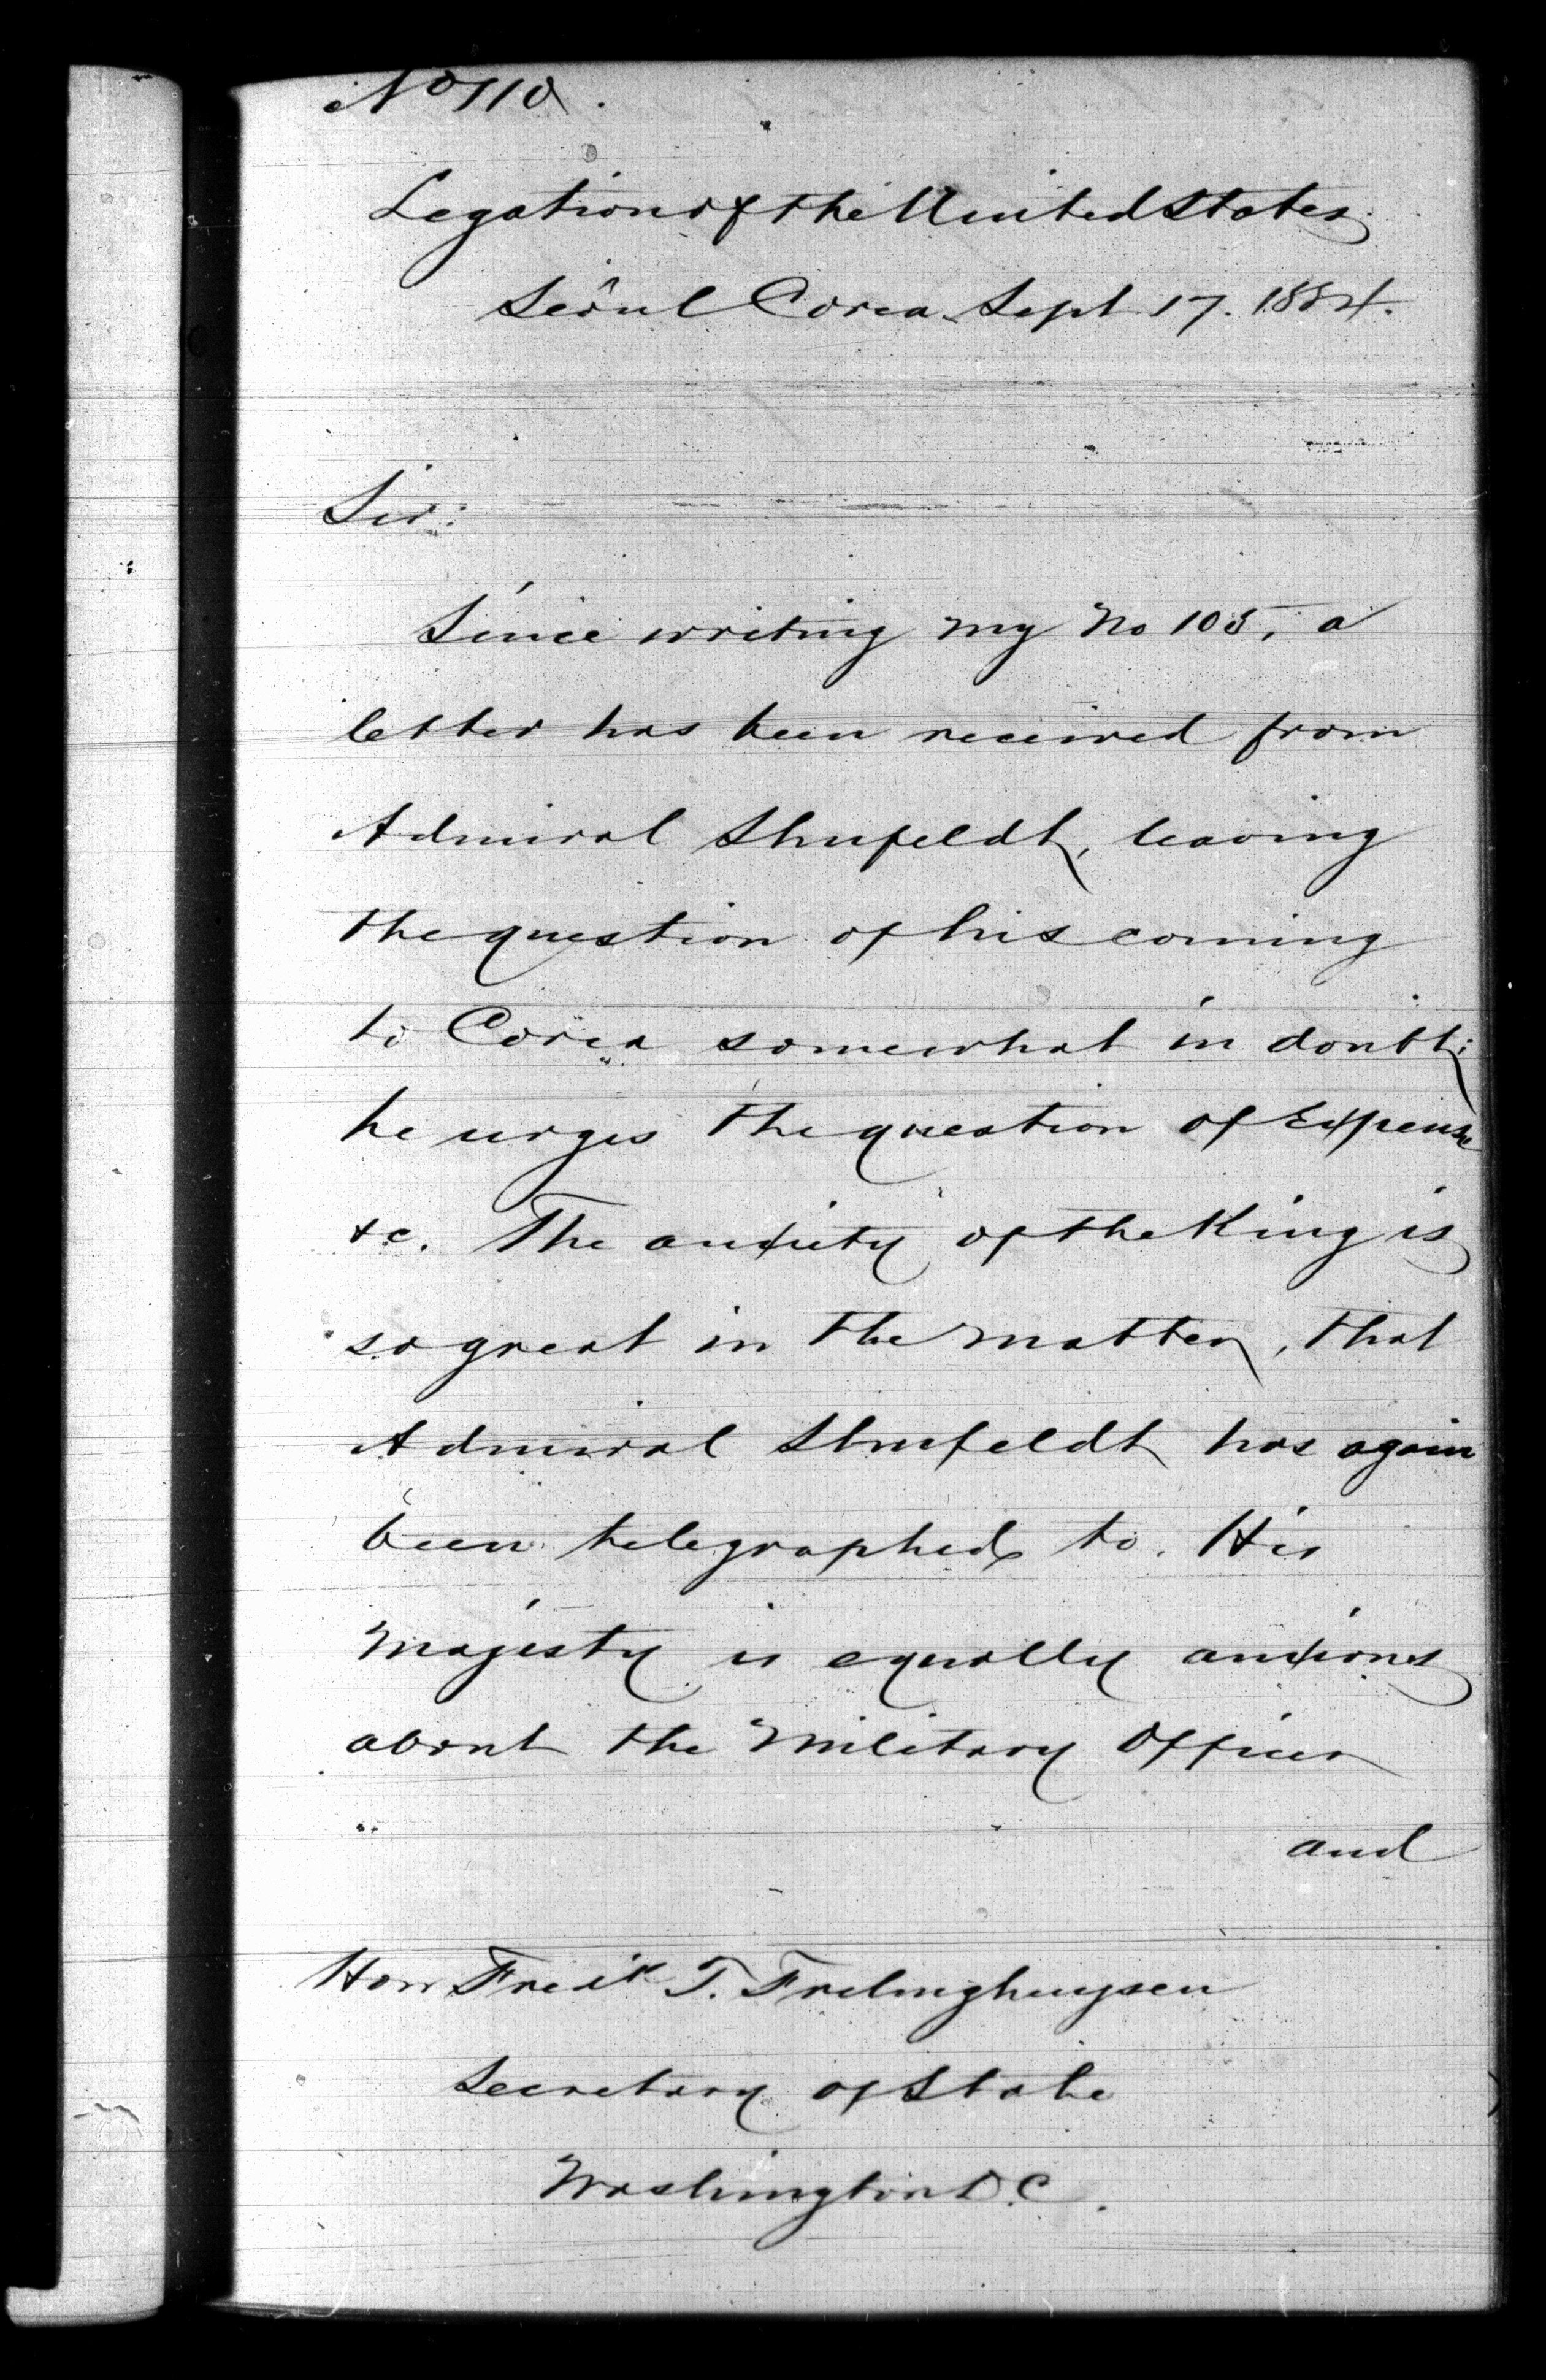 No 110.
Legation of the United States
Seoul Corea Sept 17. 1884.
Sir:
Since writing my No 105, a
letter has been received from
Admiral Shufeldt, leaving
the question of his coming
to Corea somewhat in doubt;
he urges the question of Expense
&c. The anxiety of the King is
so great in the matter, that
Admiral Shufeldt has again
been telegraphed to. His
Majesty is equally anxious
about the Military Officer
and
Hon Fredk T. Frelinghuysen
Secretary of State
Washington D.C.